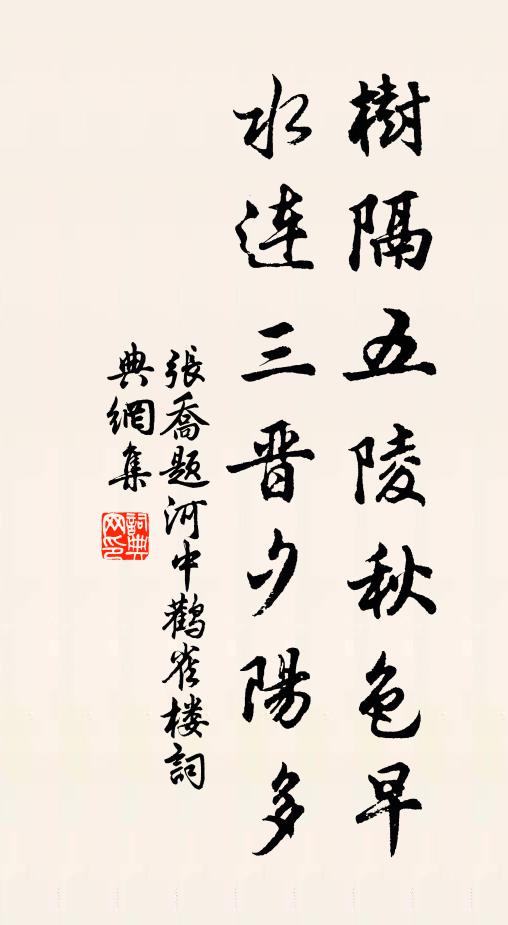 樹隔五陵秋色早
水連三晋夕陽多
張喬题河中鹳雀楼詞
典網集
詞典
网印